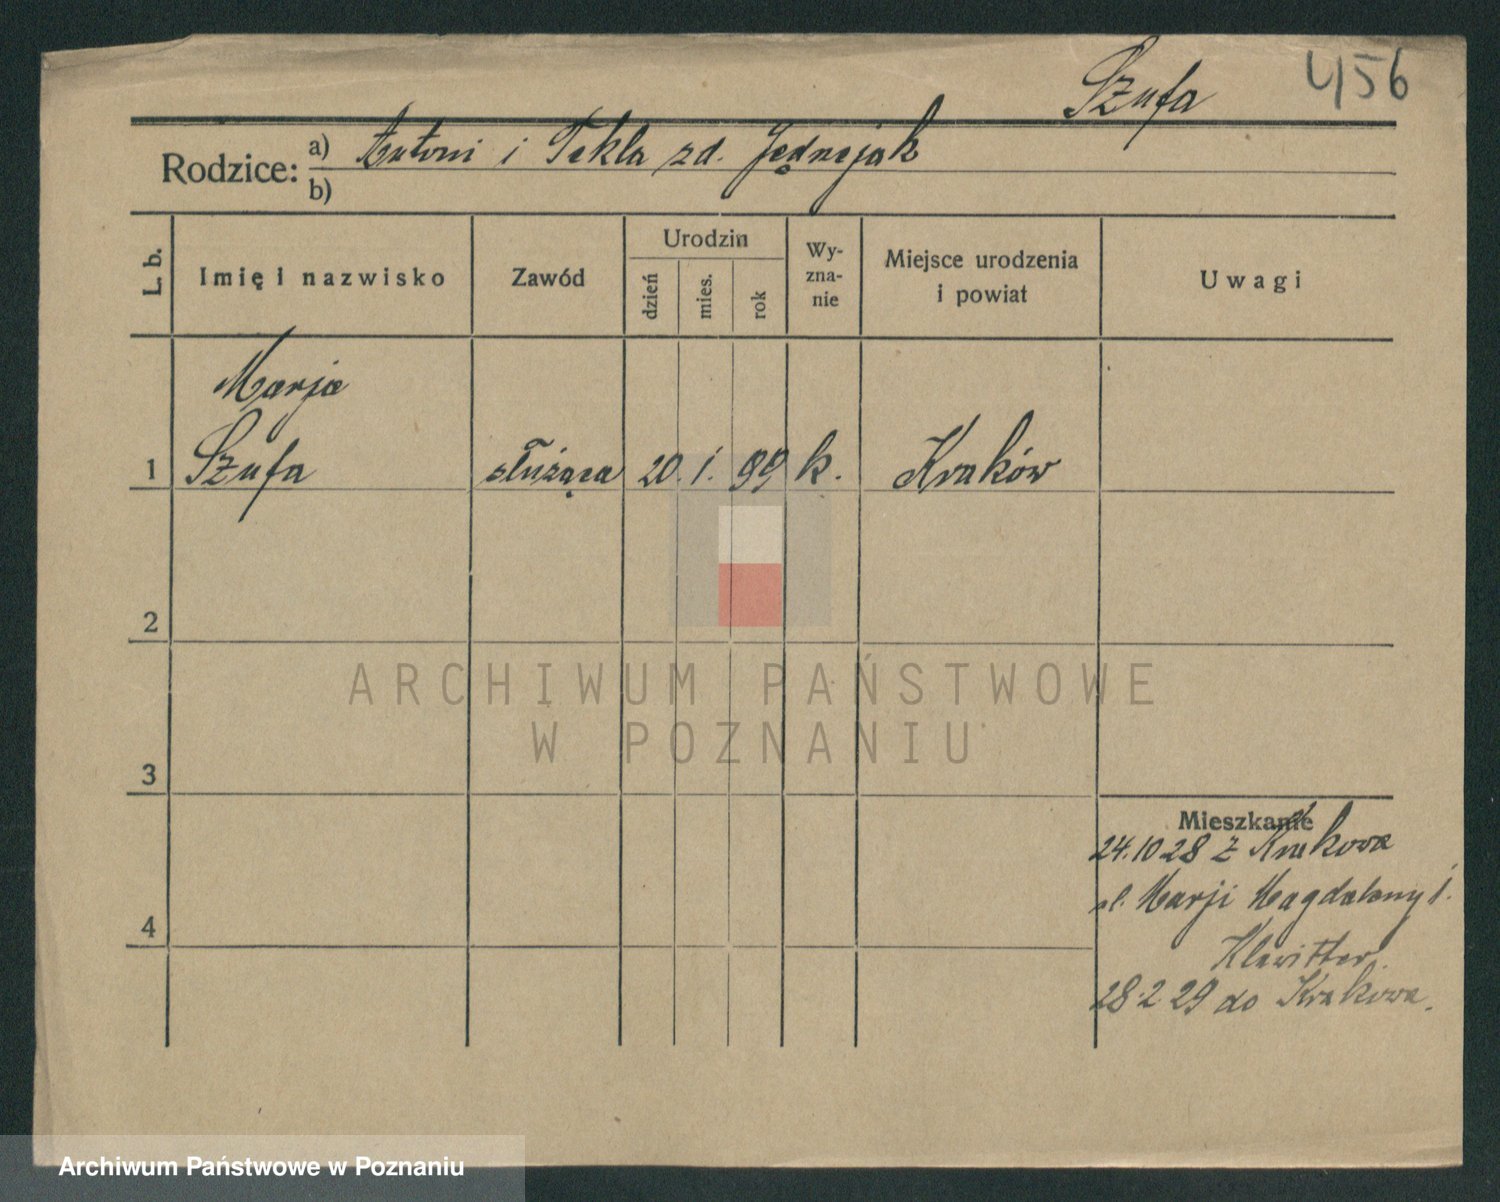 Szufa 456
Rodzice: a) Antoni i Tekla zd. Jędrzejak
b)
L. b. Imię i nazwisko Zawód Urodzin dzień mies. rok Wy-zna-nie Miejsce urodzenia i powiat Uwagi
Marja
1 Szufa służąca 20. 1. 99 k. Kraków
2
3
4
Mieszkanie
24.10 28 z Krakowa
ul. Marji Magdaleny 1.
Klewitter.
28.2 29 do Krakowa.
ARCHIWUM PAŃSTWOWE
W POZNANIU
Archiwum Państwowe w Poznaniu